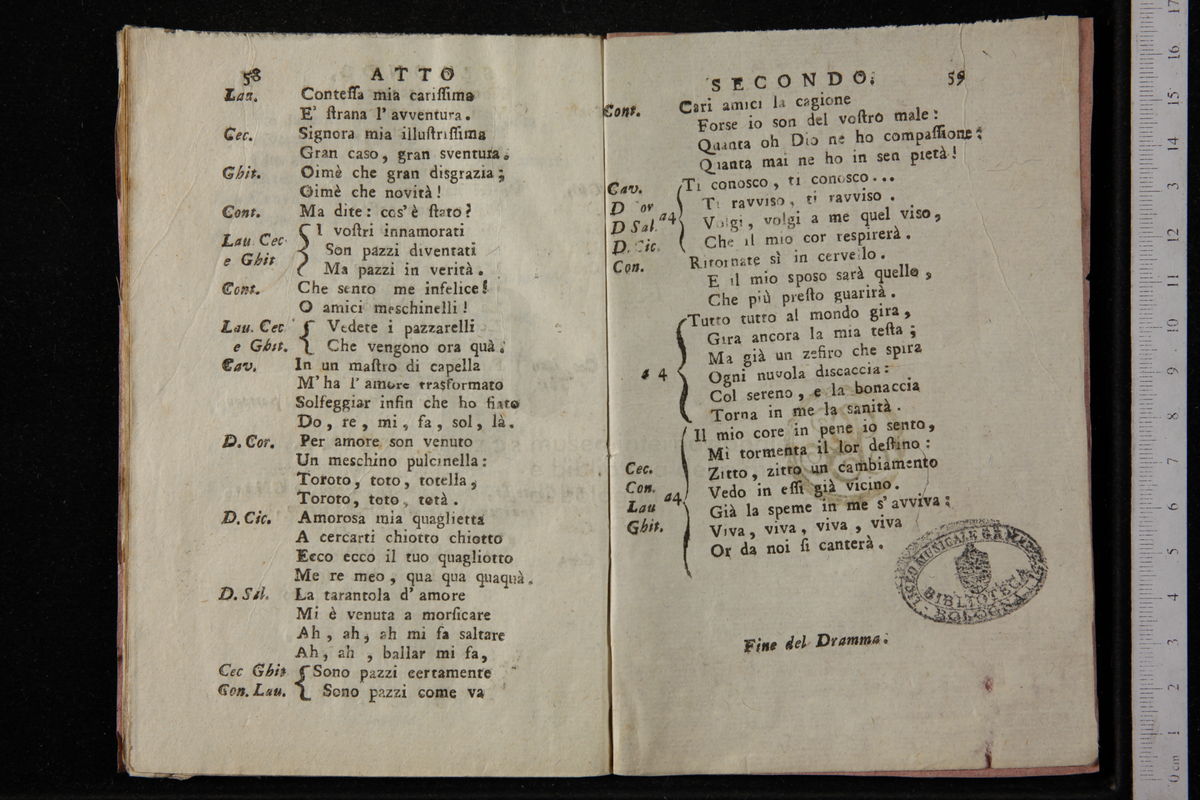 58 ATTO
Lau. Contessa mia carissima
E' strana l'avventura.
Cec. Signora mia illustrissima
Gran caso, gran sventura.
Ghit. Oimè che gran disgrazia;
Oimè che novità!
Cont. Ma dite: cos'è stato?
Lau. Cec. e Ghit { I vostri innamorati
Son pazzi diventati
Ma pazzi in verità.
Cont. Che sento me infelice!
O amici meschinelli!
Lau. Cec e Ghit. { Vedete i pazzarelli
Che vengono ora quà.
Cav. In un mastro di capella
M'ha l'amore trasformato
Solfeggiar infin che ho fiato
Do, re, mi, fa, sol, là.
D. Cor. Per amore son venuto
Un meschino pulcinella:
Tororo, toto, totella,
Toroto, toto, totà.
D. Cic. Amorosa mia quaglietta
A cercarti chiotto chiotto
Ecco ecco il tuo quagliotto
Me re meo, qua qua quaquà.
D. Sal. La tarantola d'amore
Mi è venuta a morsicare
Ah, ah, ah mi fa saltare
Ah, ah, ballar mi fa,
Cec Ghit { Sono pazzi certamente
Con. Lau. Sono pazzi come va
SECONDO. 59
Cont. Cari amici la cagione
Forse io son del vostro male:
Quanta oh Dio ne ho compassione:
Quanta mai ne ho in sen pietà!
Cav. { Ti conosco, ti conosco...
D Cor Ti ravviso, ti ravviso.
D Sal. a4 Volgi, volgi a me quel viso,
D. Cic. Che il mio cor respirerà.
Con. Ritornate sì in cervello.
E il mio sposo sarà quello,
Che più presto guarirà.
{ Tutto tutto al mondo gira,
Gira ancora la mia testa;
Ma già un zefiro che spira
a 4 Ogni nuvola discaccia:
Col sereno, e la bonaccia
Torna in me la sanità.
{ Il mio core in pene io sento,
Mi tormenta il lor destino:
Cec. Zitto, zitto un cambiamento
Con. a4 Vedo in essi già vicino.
Lau Già la speme in me s'avviva;
Ghit. Viva, viva, viva, viva
Or da noi si canterà.
Fine del Dramma.
LICEO MUSICALE
BIBLIOTECA
BOLOGNA
0 cm 1 2 3 4 5 6 7 8 9 10 11 12 13 14 15 16 17